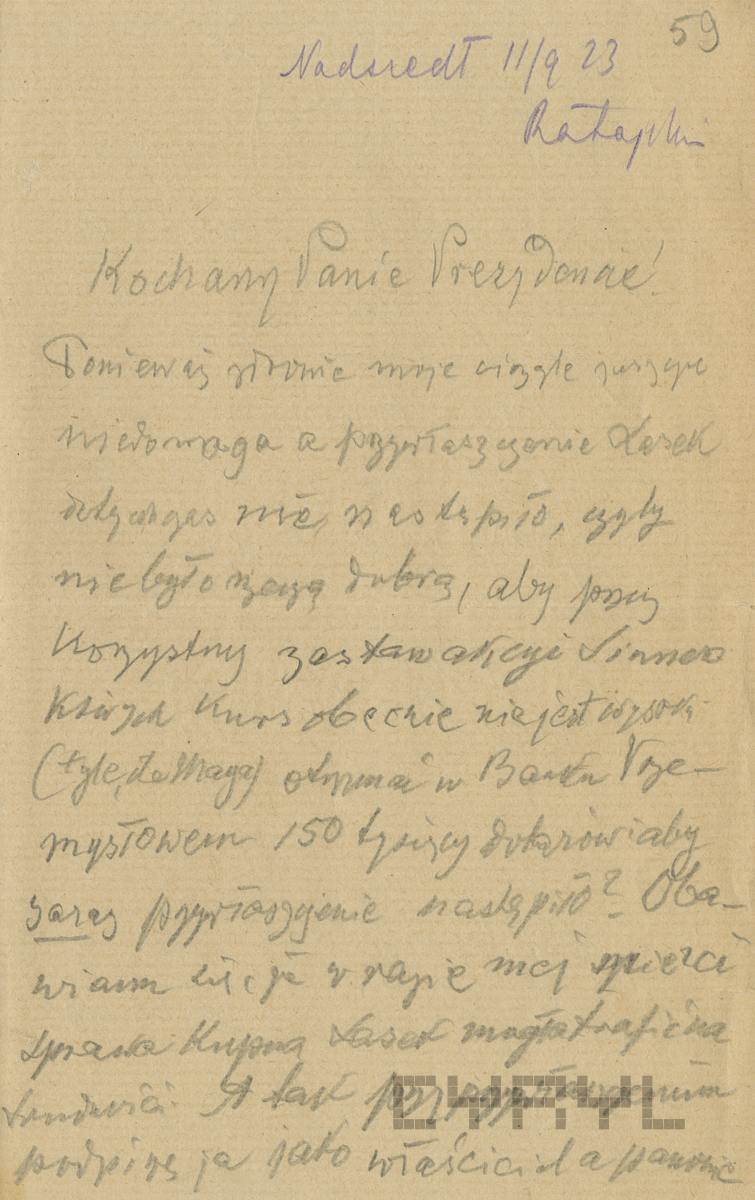 59
Nadszedł 11/9 23
Ratajski
Kochany Panie Prezydencie!
Ponieważ zdrowie moje ciągle jeszcze
niedomaga a przywłaszczenie Lasek
dotychczas nie nastąpiło, czyby
nie było rzeczą dobrą, aby przy
Korzystny zastaw akcyi
których kurs obecnie nie jest wysoki
(tyle, że Maga) otrzymać w Banku Prze-
mysłowem 150 tysięcy dolarów i aby
zaraz przywłaszczenie nastąpiło? Oba-
wiam się że w razie mej śmierci
sprawa Kupna Lasek mogła trafić na
trudności. A tak przy
podpiszę ja jako właściciel a panowie
CYRYL